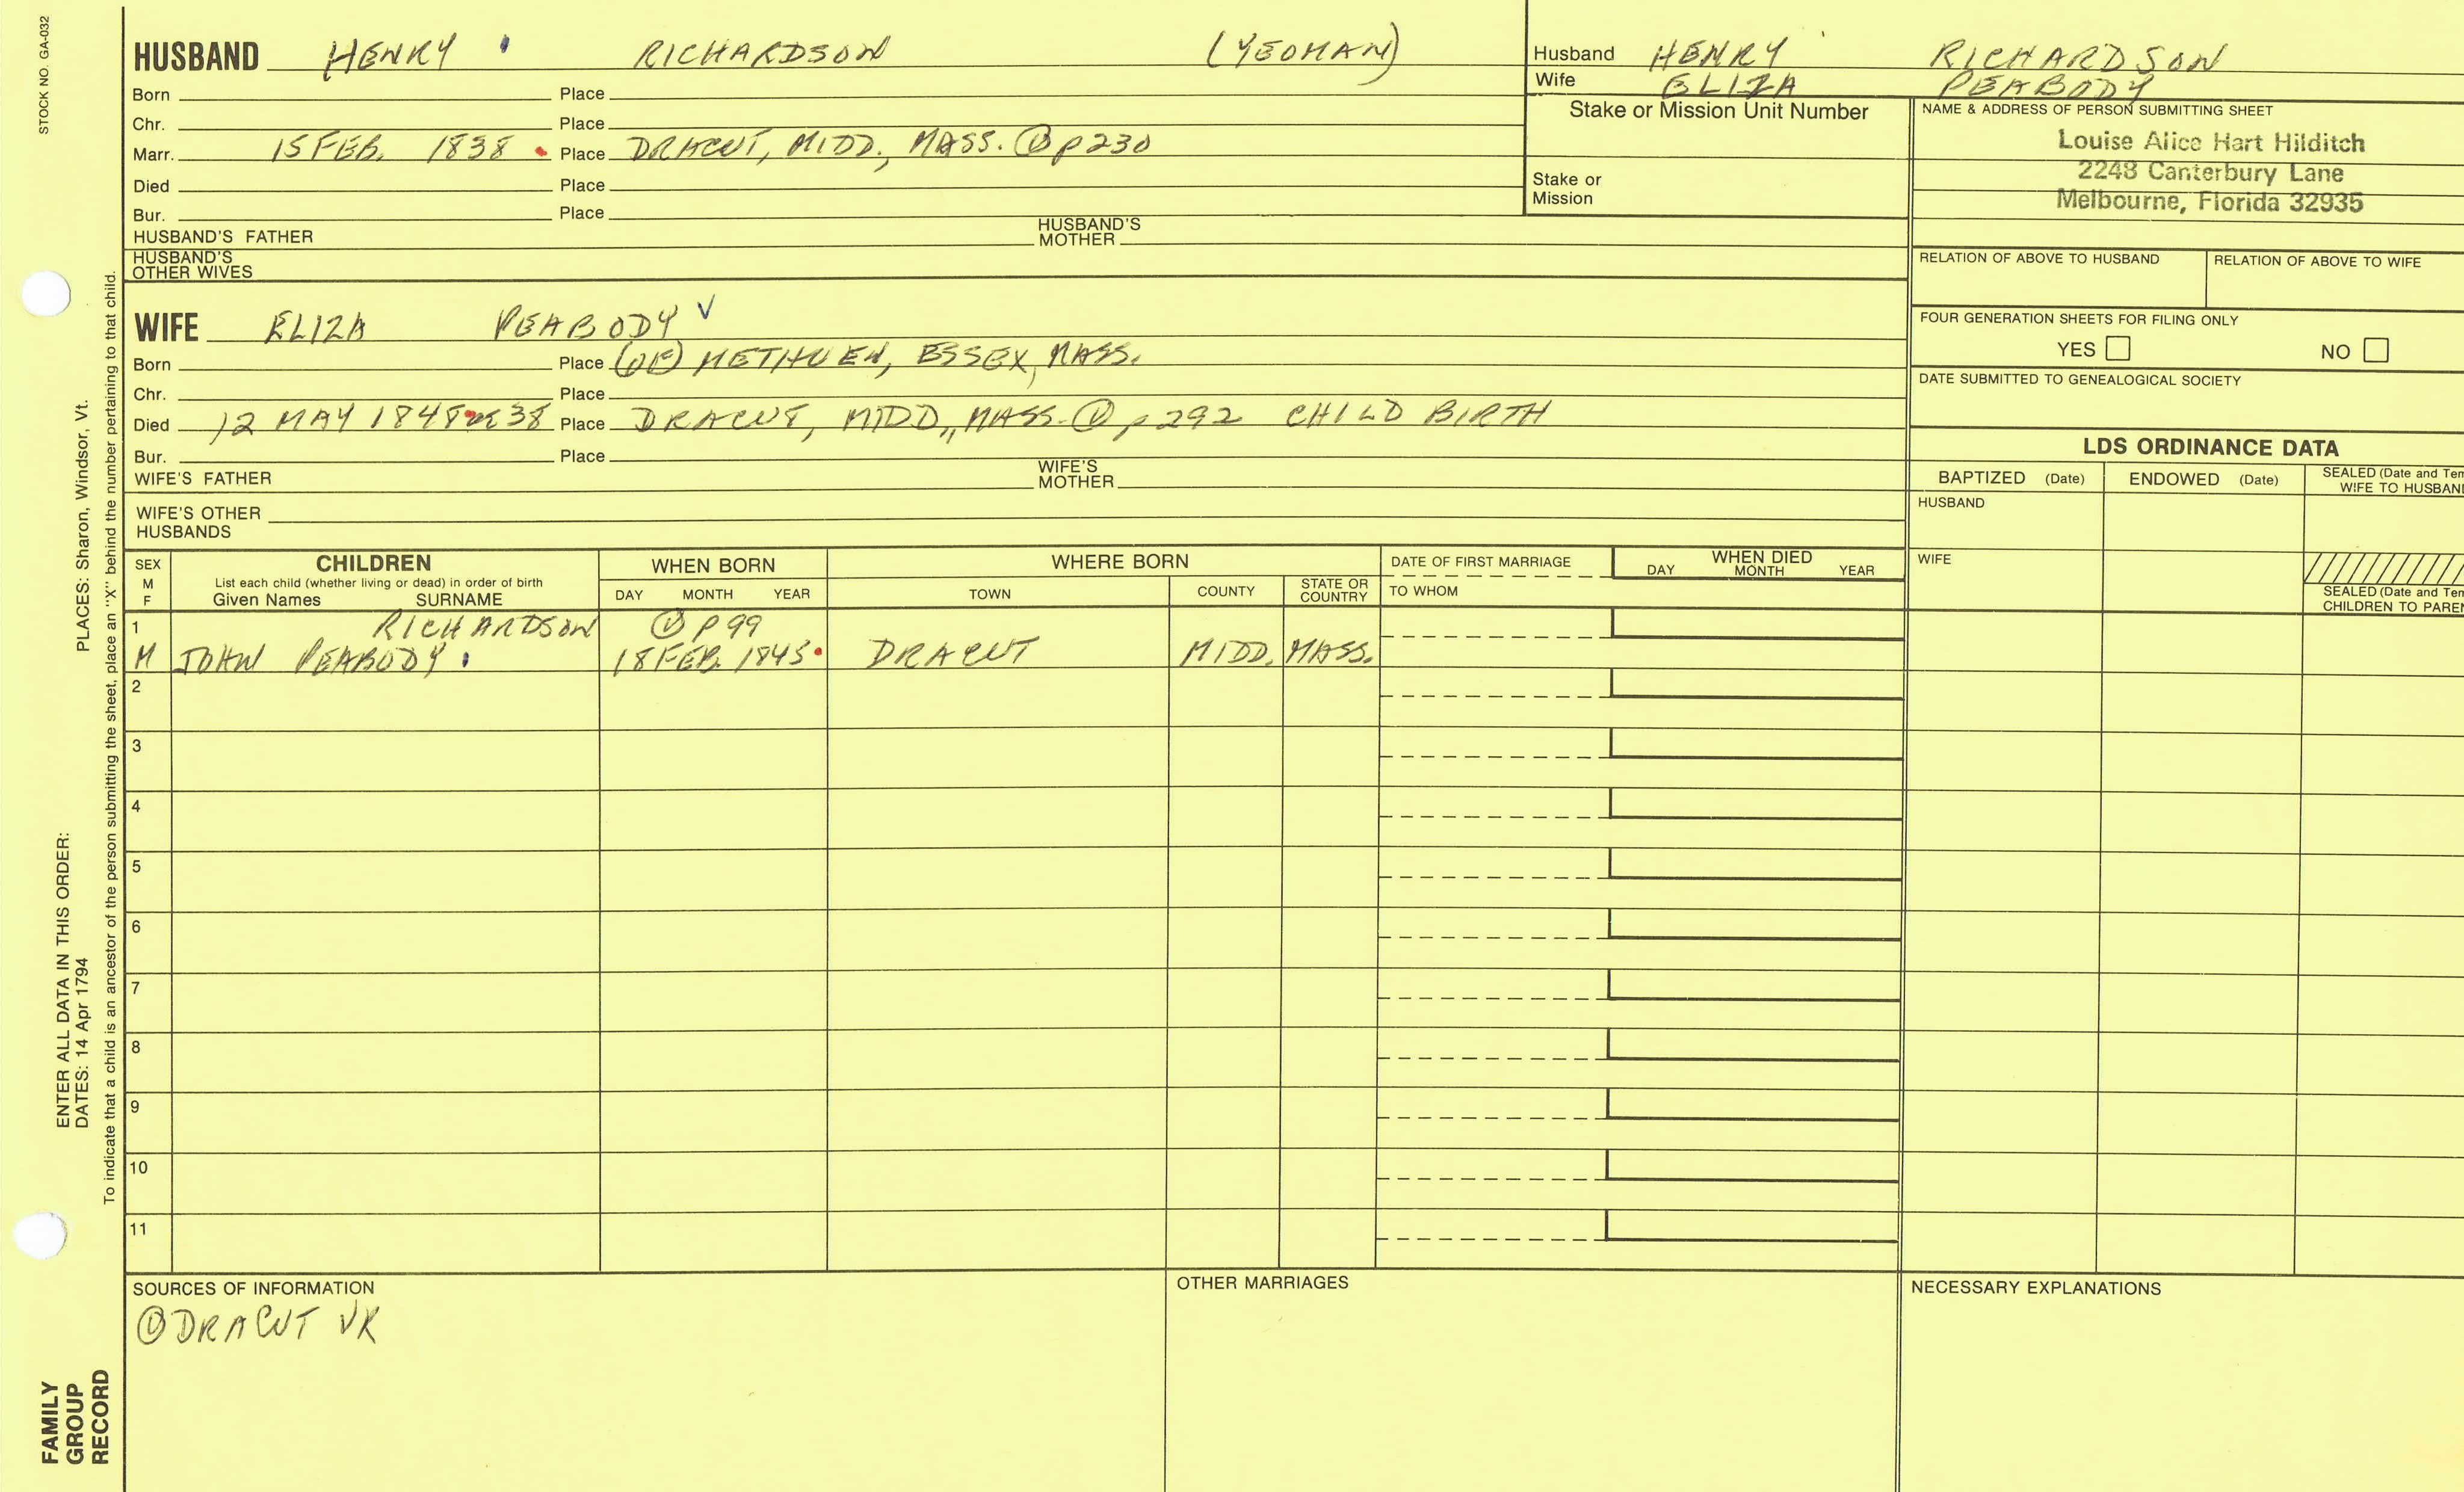 STOCK NO. GA-032
HUSBAND HENRY RICHARDSON (YEOMAN)
Born Place
Chr. Place
Marr. 15 FEB. 1838 Place DRACUT, MIDD., MASS. ① p230
Died Place
Bur. Place
HUSBAND'S FATHER HUSBAND'S MOTHER
HUSBAND'S OTHER WIVES
Husband HENRY RICHARDSON
Wife ELIZA PEABODY
Stake or Mission Unit Number
Stake or Mission
NAME & ADDRESS OF PERSON SUBMITTING SHEET
Louise Alice Hart Hilditch
2248 Canterbury Lane
Melbourne, Florida 32935
RELATION OF ABOVE TO HUSBAND RELATION OF ABOVE TO WIFE
FOUR GENERATION SHEETS FOR FILING ONLY
YES NO
DATE SUBMITTED TO GENEALOGICAL SOCIETY
WIFE ELIZA PEABODY √
Born Place (OF) METHUEN, ESSEX, MASS.
Chr. Place
Died 12 MAY 1848 38 Place DRACUT, MIDD., MASS. ① p292 CHILD BIRTH
Bur. Place
WIFE'S FATHER WIFE'S MOTHER
WIFE'S OTHER HUSBANDS
LDS ORDINANCE DATA
BAPTIZED (Date) ENDOWED (Date) SEALED (Date and Tem
WIFE TO HUSBAN
HUSBAND
WIFE
SEALED (Date and Tem
CHILDREN TO PARE
SEX M F
CHILDREN
List each child (whether living or dead) in order of birth
Given Names SURNAME
WHEN BORN
DAY MONTH YEAR
WHERE BORN
TOWN COUNTY STATE OR COUNTRY
DATE OF FIRST MARRIAGE
TO WHOM
WHEN DIED
DAY MONTH YEAR
1 RICHARDSON ① p99
M JOHN PEABODY 18 FEB. 1845 DRACUT MIDD. MASS.
2
3
4
5
6
7
8
9
10
11
SOURCES OF INFORMATION
① DRACUT VR
OTHER MARRIAGES
NECESSARY EXPLANATIONS
FAMILY
GROUP
RECORD
ENTER ALL DATA IN THIS ORDER:
DATES: 14 Apr 1794 PLACES: Sharon, Windsor, Vt.
To indicate that a child is an ancestor of the person submitting the sheet, place an "X" behind the number pertaining to that child.